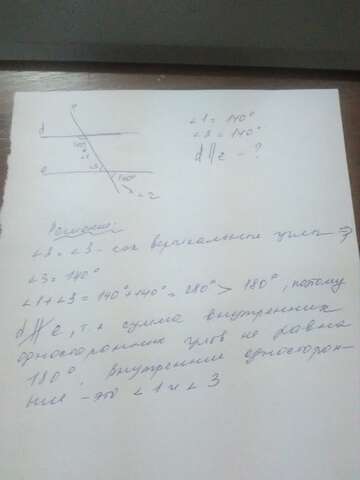 d
140°
∠1
e
∠3
140°
∠2
∠1 = 140°
∠2 = 140°
d∥e - ?
Решение:
∠2 = ∠3 - как вертикальные углы ⇒
∠3 = 140°
∠1+∠3 = 140°+140° = 280° > 180°, поэтому
d∦e, т.к сумма внутренних
односторонних углов не равна
180°. Внутренние односторон-
ние - это ∠1 и ∠3